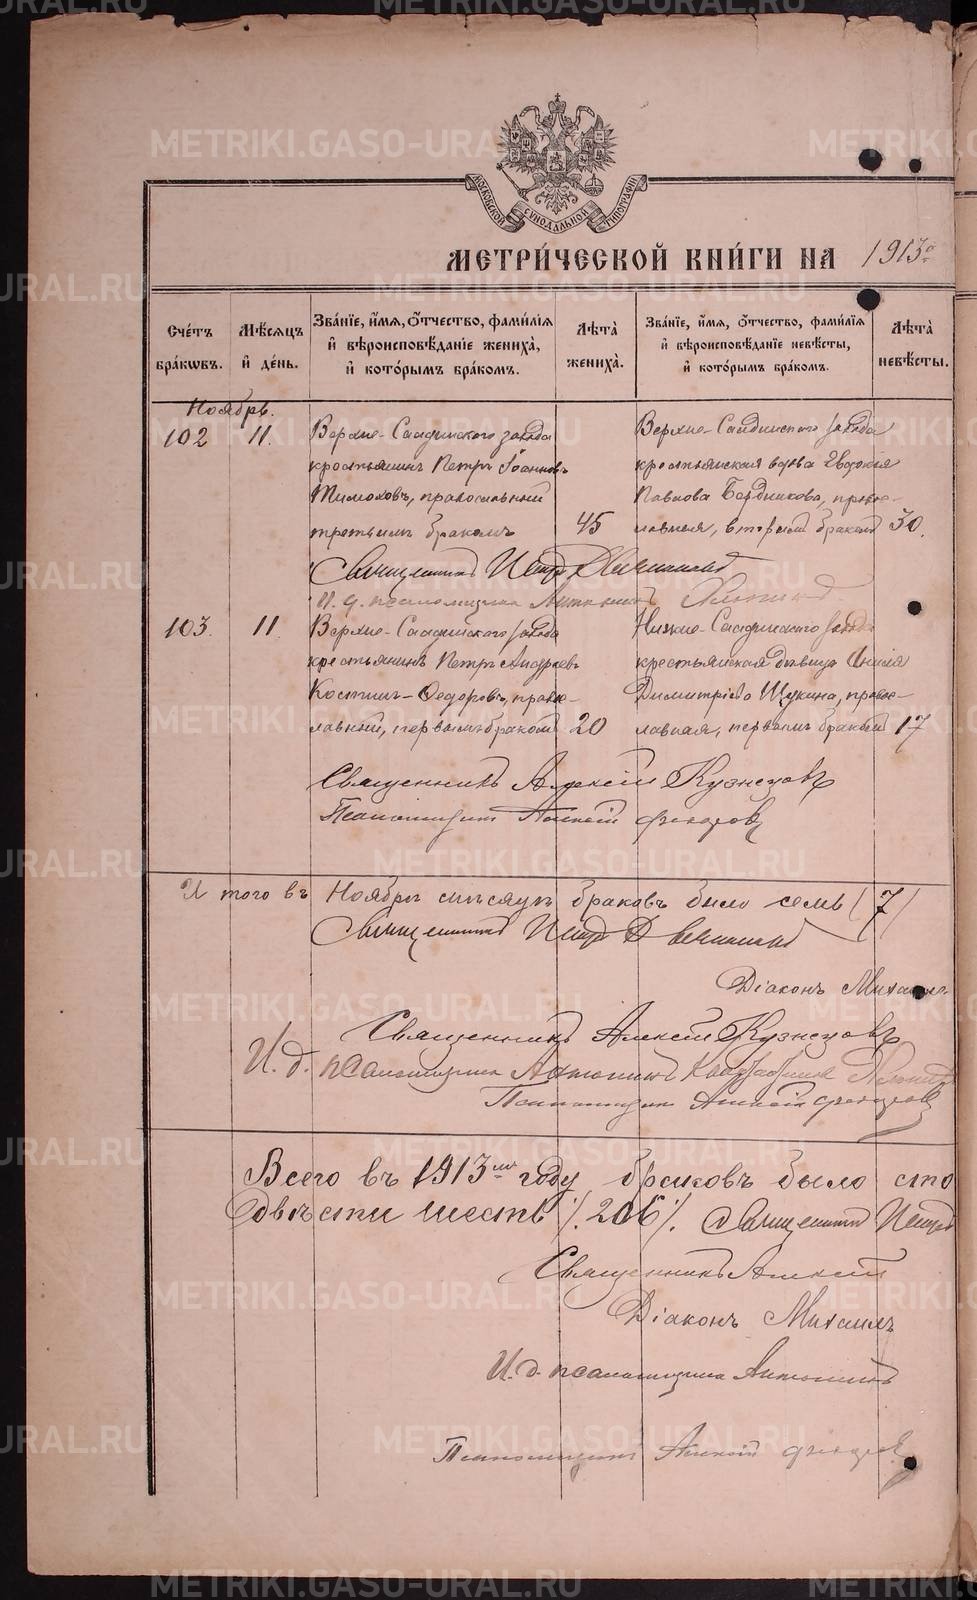 МОСКОВСКОЙ СѴНОДАЛЬНОЙ ТИПОГРАФІИ
МЕТРИ́ЧЕСКОЙ КНИ́ГИ НА 1913 й
Сче́тъ бра́кѡвъ.
Мѣ́сяцъ и҆ де́нь.
Зва́нїе, и҆́мѧ, ѻ҆́тчество, фами́лїѧ и҆ вѣроисповѣ́данїе жениха̀, и҆ кото́рымъ бра́комъ.
Лѣ́та жениха̀.
Зва́нїе, и҆́мѧ, ѻ҆́тчество, фами́лїѧ и҆ вѣроисповѣ́данїе невѣ́сты, и҆ кото́рымъ бра́комъ.
Лѣ́та невѣ́сты.
Ноябрь.
102 11. Верхне-Салдинского завода
крестьянинъ Петръ Іоанновъ
Тимоховъ, православный
третьимъ бракомъ 45
Верхне-Салдинского завода
крестьянская вдова Евдокія
Павлова Бердникова, право-
славная, вторымъ бракомъ 30.
Священникъ Петръ
И. д. псаломщика Антонинъ
103. 11. Верхне-Салдинского завода
крестьянинъ Петръ Андреевъ
Костинъ-Ѳедоровъ, право-
славный, первымъ бракомъ 20
Нижне-Салдинского завода
крестьянская дѣвица
Димитріева Щукина, право-
славная, первымъ бракомъ 17
Священникъ Алексій Кузнецовъ
Псаломщикъ Алексій Флоровъ
Итого въ Ноябрѣ мѣсяцѣ браковъ было семь (7)
Священникъ Петръ
Діаконъ Михаилъ
Священникъ Алексій Кузнецовъ
И. д. псаломщика Антонинъ
Псаломщикъ Алексій Флоровъ
Всего въ 1913 мъ году браковъ было сто
двѣсти шесть /. 206 /. Священникъ Петръ
Священникъ Алексій
Діаконъ Михаилъ
И. д. псаломщика Антонинъ
Псаломщикъ Алексій Флоровъ
METRIKI.GASO-URAL.RU